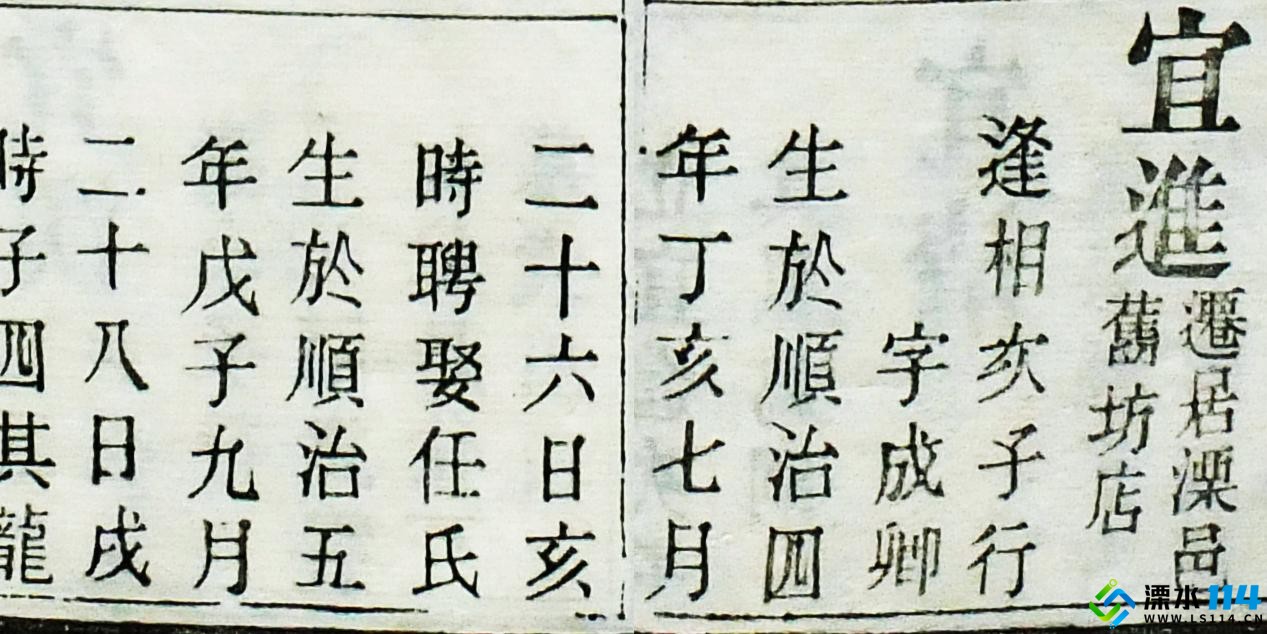 宜進
遷居溧邑
舊坊店
逢相次子行
字成卿
生於順治四
年丁亥七月
二十六日亥
時聘娶任氏
生於順治五
年戊子九月
二十八日戌
時子四其龍
溧水114
WWW.LS114.CN